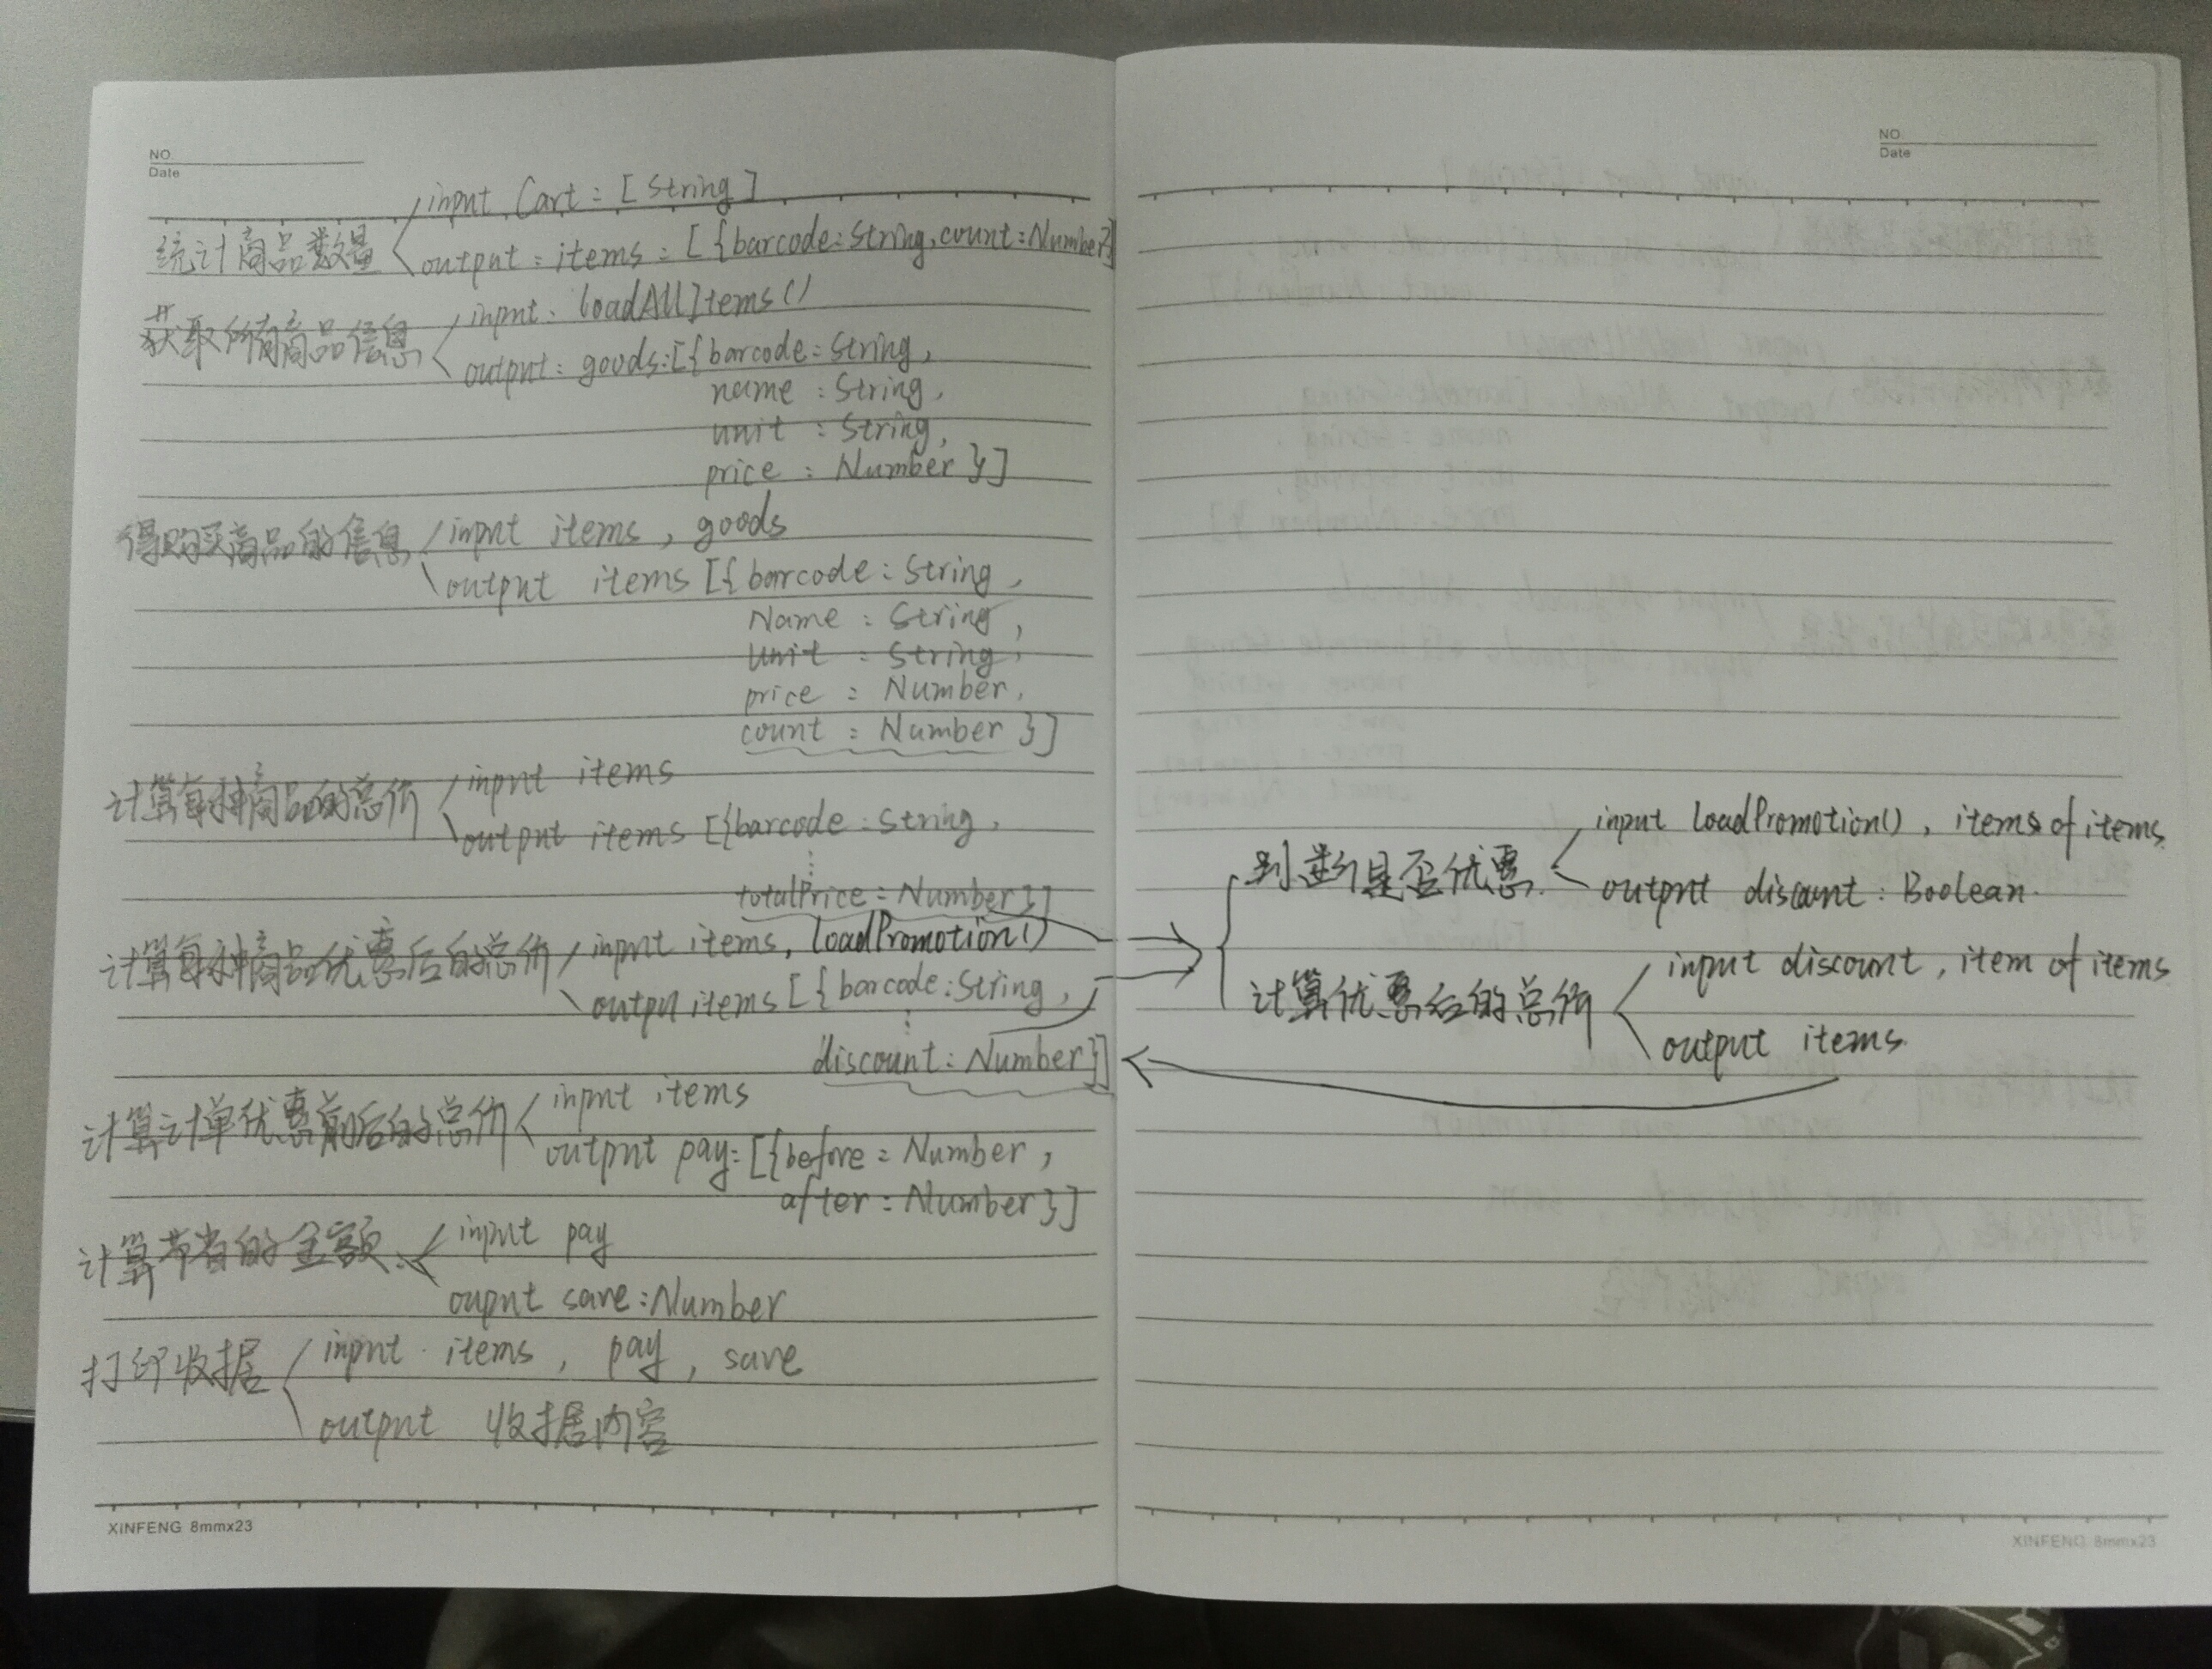 NO.
Date
input Cart : [String]
统计商品数量
output : items : [{barcode : String, count : Number}]
获取所有商品信息
input : loadAllItems()
output : goods : [{barcode : String,
name : String,
unit : String,
price : Number}]
得购买商品的信息
input items, goods
output items [{barcode : String,
Name : String,
unit : String,
price : Number,
count : Number}]
计算每种商品的总价
input items
output items [{barcode : String,
⋮
totalPrice : Number}]
计算每种商品优惠后的总价
input items, loadPromotion()
output items [{barcode : String,
⋮
discount : Number}]
计算计单优惠前后的总价
input items
output pay : [{before : Number,
after : Number}]
计算节省的金额
input pay
ouput save : Number
打印收据
input items, pay, save
output 收据内容
XINFENG 8mmx23
NO
Date
判断是否优惠
input loadPromotion(), items of items
output discount : Boolean.
计算优惠后的总价
input discount, item of items
output items.
XINFENG 8mmx23